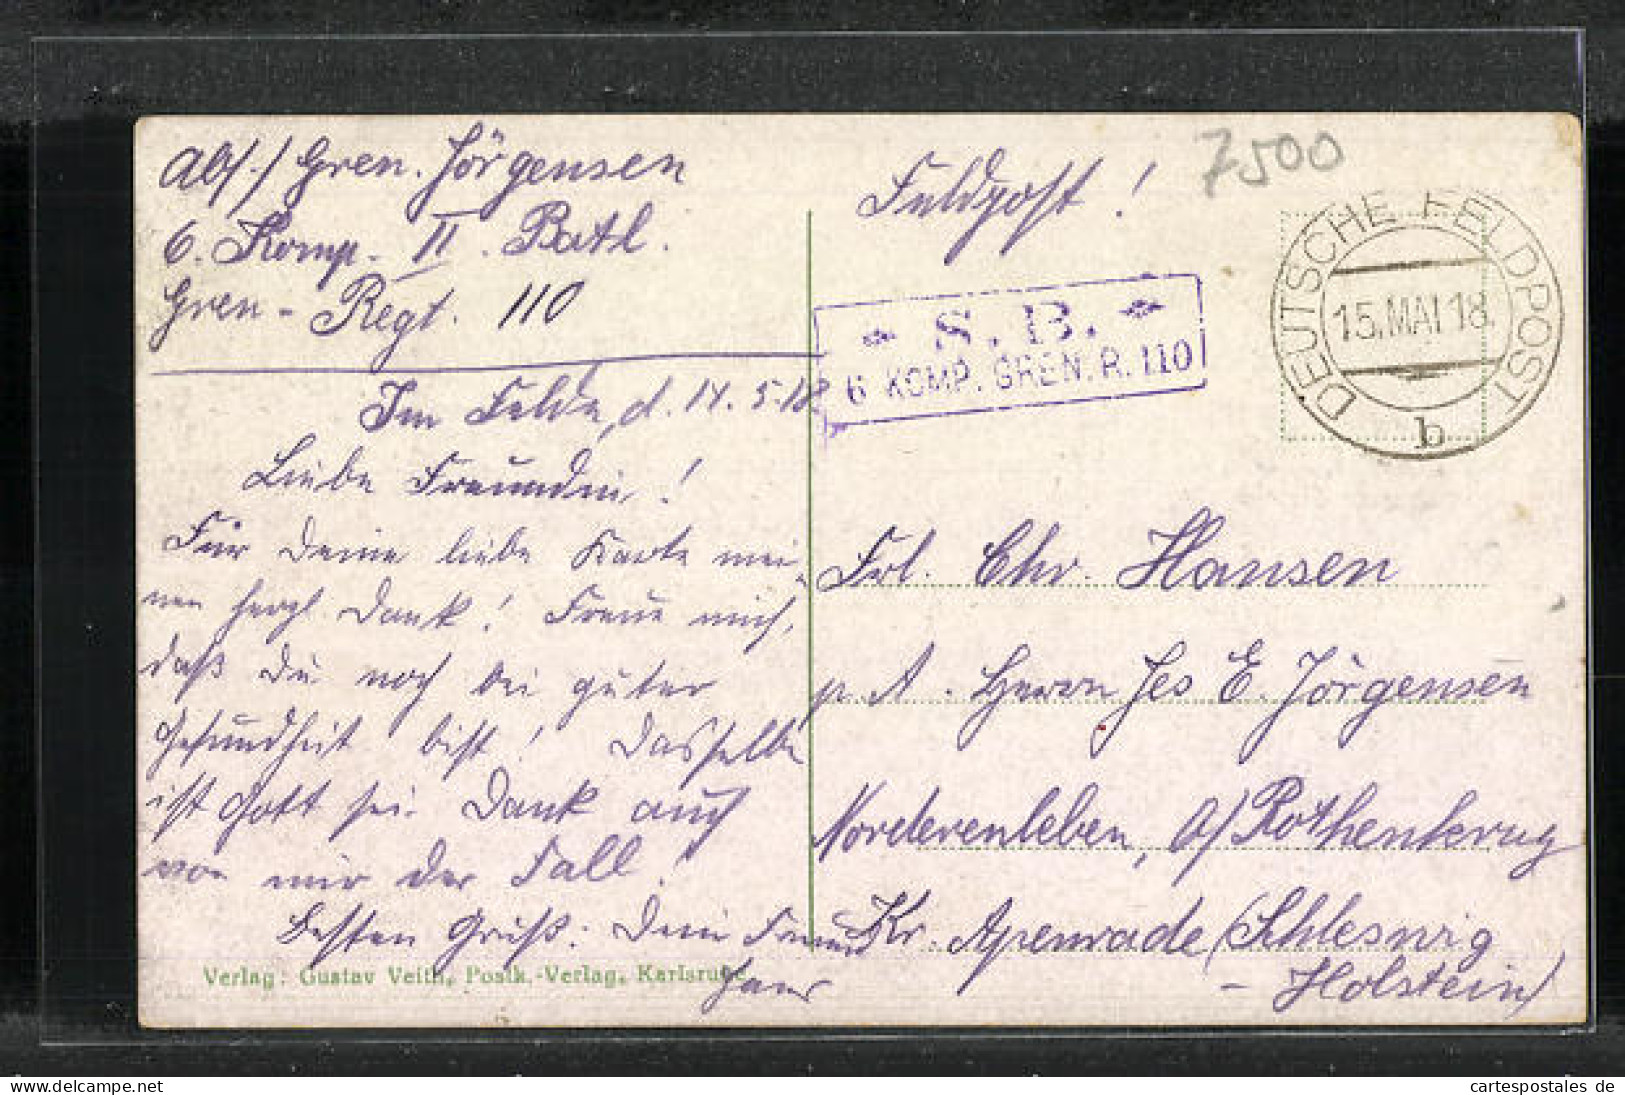 Abs./ Gren. Jörgensen
6. Komp. II. Batl.
Gren-Regt. 110
Im Felde, d. 14.5.18
Liebe Freundin!
Für Deine liebe Karte mei-
nen herzl. Dank! Freue mich,
daß Du noch bei guter
Gesundheit bist! Dasselbe
ist Gott sei Dank auch
von mir der Fall!
Besten Gruß: Dein Freund
Hans
Verlag: Gustav Veith, Postk.-Verlag, Karlsruhe
7500
Feldpost!
S. B.
6 KOMP. GREN. R. 110
DEUTSCHE FELDPOST
15. MAI 18.
b
Frl. Chr. Hansen
p. A. Herrn Jes E. Jörgensen
Norderenleben, a/ Rothenkrug
Kr. Apenrade (Schleswig
- Holstein)
cartespostales de